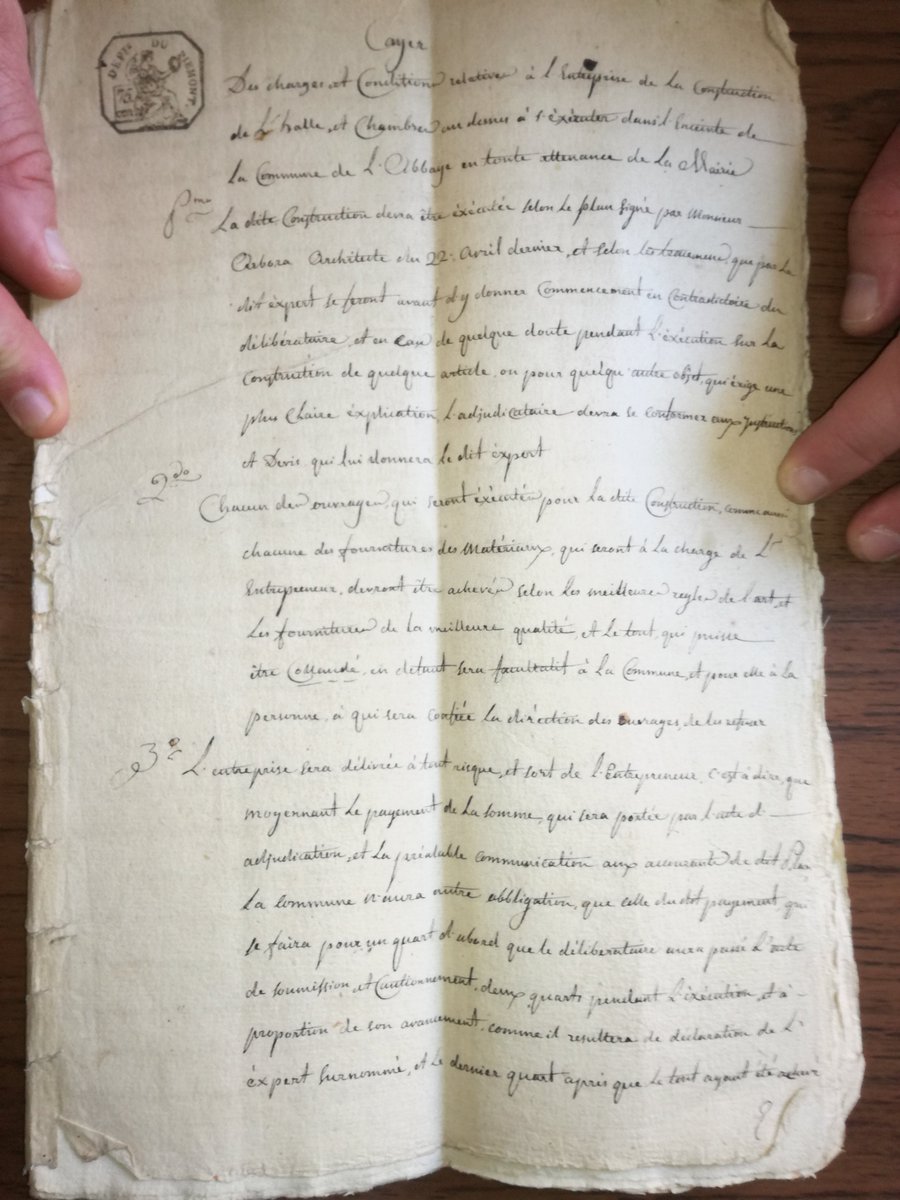 DEPT. DU PIEMONT
Cayer
Des charges et Conditions relatives à l'Entreprise de la Construction
de l'halle, et Chambres au dessus à s'éxécuter dans l'Enceinte de
La Commune de L'Abbaye en toute attenance de La Mairie
Pmo
La dite Construction devra être éxécutée selon Le plan signé par Monsieur
Architecte du 22. Avril dernier, et selon les que par Le
dit éxpert se feront avant d'y donner Commencement en Contradictoire du
délibérataire, et en cas de quelque doute pendant L'éxécution sur La
Construction de quelque article, ou pour quelqu'autre objèt, qui éxige une
plus Claire éxplication, L'adjudicataire devra se conformer aux Instructions
et Devis, qui lui donnera le dit éxpert
2do
Chacun des ouvrages, qui seront éxécutés pour La dite Construction, comme aussi
chacune des fournitures des Matériaux, qui seront à La charge de L'
Entrepreneur, devront être achevés selon Les meilleures regles de l'art, et
Les fournitures de la meilleure qualité, et Le tout, qui puisse
être Collaudé, en defaut sera facultatif à La Commune, et pour elle à La
personne, à qui sera confiée La diréction des ouvrages, de les refuser
3o
L'entreprise sera délivrée à tout risque, et sort de l'Entrepreneur, c'est à dire, que
moyennant Le payement de La somme, qui sera portée par l'acte d'
adjudication, et La préalable communication aux accourants de dit Plan
La Commune n'aura autre obbligation, que celle du dit payement, qui
se faira pour un quart d'abord que le délibérataire aura passé L'acte
de soumission, et Cautionnement, deux quarts pendant L'éxécution, et à
proportion de son avancement, comme il resultera de déclaration de L'
éxpert surnommé, et Le dernier quart après que Le tout ayant été